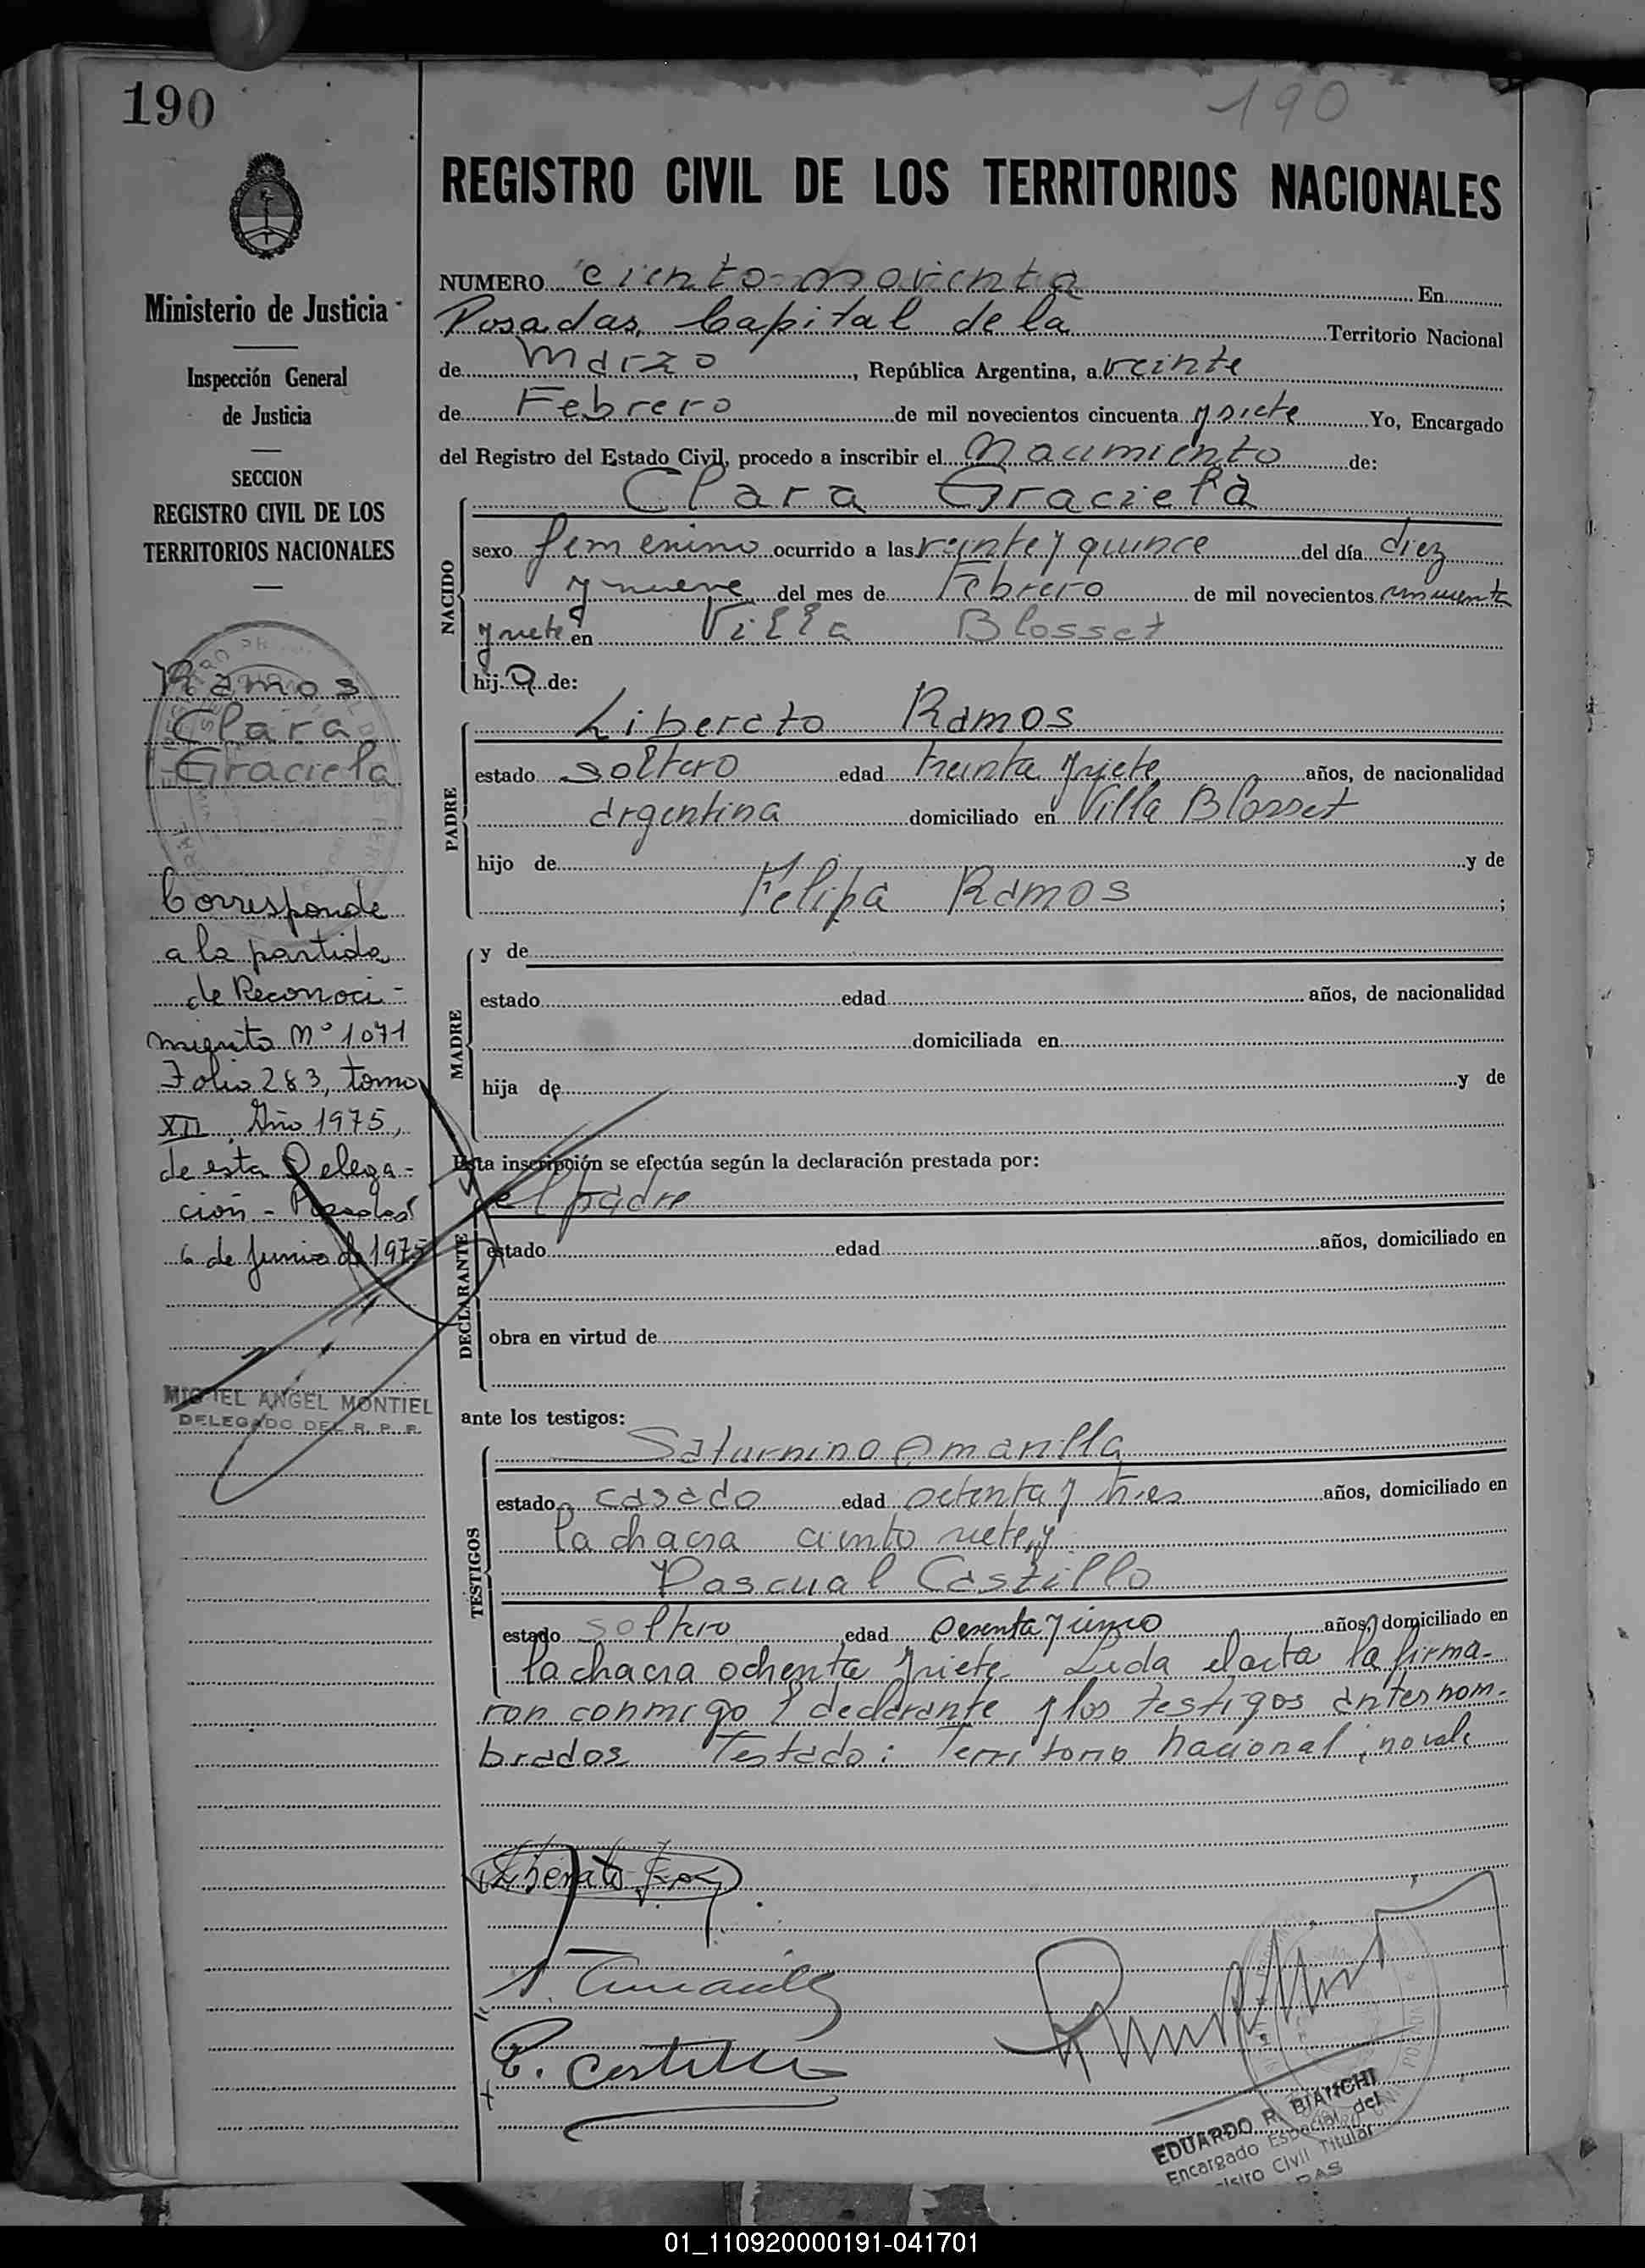 190
190
REGISTRO CIVIL DE LOS TERRITORIOS NACIONALES
Ministerio de Justicia
Inspección General
de Justicia
SECCION
REGISTRO CIVIL DE LOS
TERRITORIOS NACIONALES
Ramos
Clara
Graciela
Corresponde
a la partida
de Reconoci-
miento Nº 1071
Folio 283, tomo
XII Año 1975,
de esta Delega-
ción - Posadas
6 de Junio de 1975
MIGUEL ANGEL MONTIEL
DELEGADO DEL R. P. P.
NUMERO ciento noventa En
Posadas, Capital de la Territorio Nacional
de Marzo, República Argentina, a veinte
de Febrero de mil novecientos cincuenta y siete Yo, Encargado
del Registro del Estado Civil, procedo a inscribir el Nacimiento de:
Clara Graciela
NACIDO
sexo femenino ocurrido a las veinte y quince del día diez
y nueve del mes de Febrero de mil novecientos cincuenta
y siete en Villa Blosset
hija de:
Liberato Ramos
PADRE
estado soltero edad treinta y siete años, de nacionalidad
argentina domiciliado en Villa Blosset
hijo de y de
Felipa Ramos ;
MADRE
y de
estado edad años, de nacionalidad
domiciliada en
hija de y de
Esta inscripción se efectúa según la declaración prestada por:
el padre
DECLARANTE
estado edad años, domiciliado en
obra en virtud de
ante los testigos:
Saturnino Amarilla
TESTIGOS
estado casado edad setenta y tres años, domiciliado en
la chacra ciento siete, y
Pascual Castillo
estado soltero edad sesenta y cinco años, domiciliado en
la chacra ochenta y siete. Leida el acta la firma-
ron conmigo el declarante y los testigos antes nom-
brados Testado: Territorio Nacional, no vale
Liberato Ramos
S. Amarilla
P. Castillo
EDUARDO R. BIANCHI
Encargado Especial del
Registro Civil Titular
01_110920000191-041701